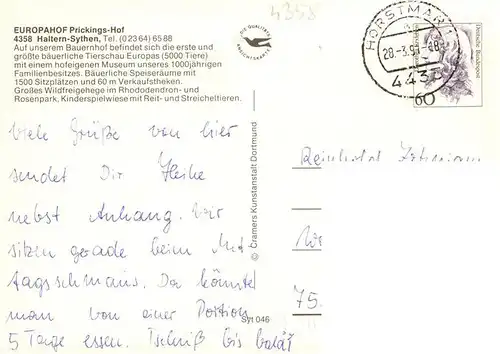 4358
EUROPAHOF Prickings-Hof
4358 Haltern-Sythen, Tel. (0 23 64) 65 88
Auf unserem Bauernhof befindet sich die erste und
größte bäuerliche Tierschau Europas (5000 Tiere)
mit einem hofeigenen Museum unseres 1000jährigen
Familienbesitzes. Bäuerliche Speiseräume mit
1500 Sitzplätzen und 60 m Verkaufstheken.
Großes Wildfreigehege im Rhododendron- und
Rosenpark, Kinderspielwiese mit Reit- und Streicheltieren.
HORSTMAR
28.-3.9
4435
60
Deutsche Bundespost
viele Grüße von hier
sendet Dir Heike
nebst Anhang. Wir
sitzen gerade beim Mit
tagsschmaus. Da könnte
man von einer Portion
5 Tage essen. Tschüß bis bald
© Cramers Kunstanstalt Dortmund
Syt 046
Reinhold
75.